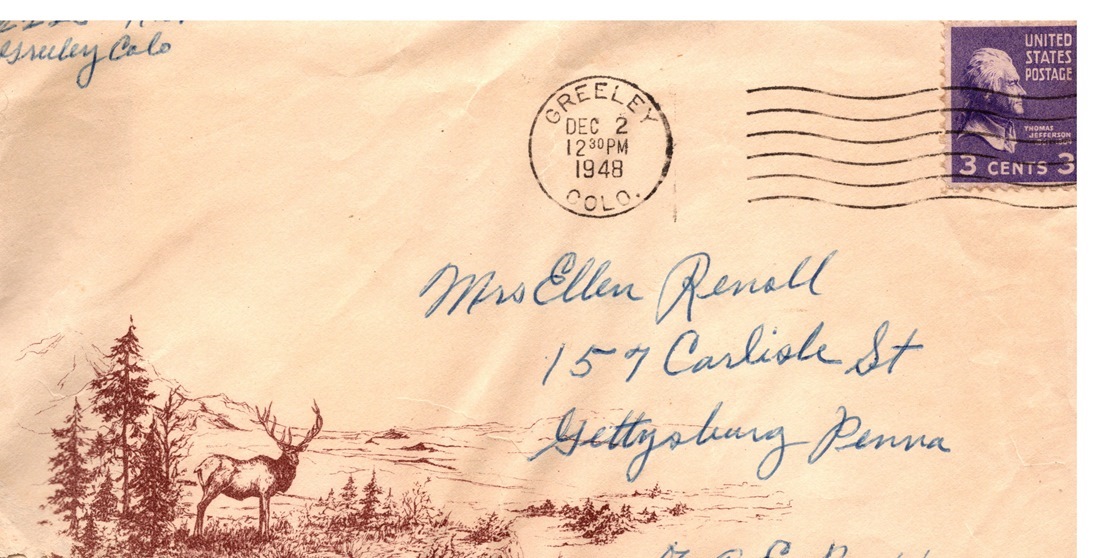 Greeley Colo
UNITED
STATES
POSTAGE
THOMAS
JEFFERSON
3 CENTS 3
GREELEY
DEC 2
12 30 PM
1948
COLO.
Mrs Ellen Renoll
157 Carlisle St
Gettysburg Penna